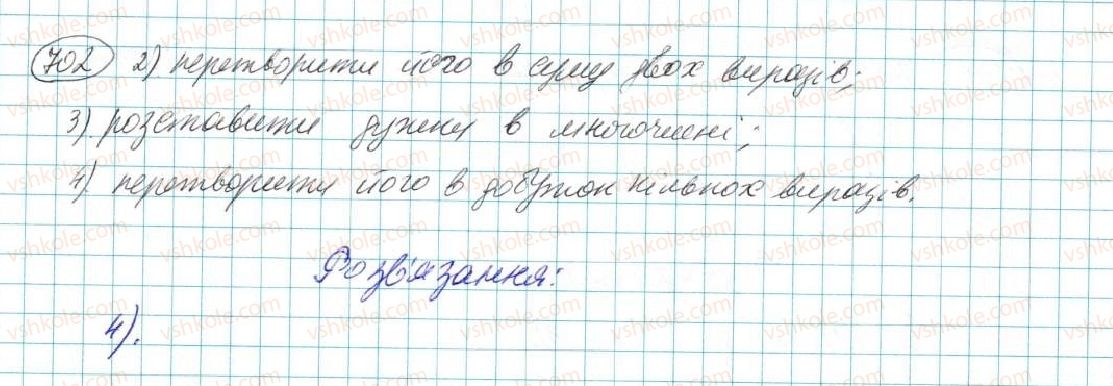 702 2) перетворити його в суму двох виразів;
3) розставити дужки в многочлені;
4) перетворити його в добуток кількох виразів.
Розв'язання:
4).